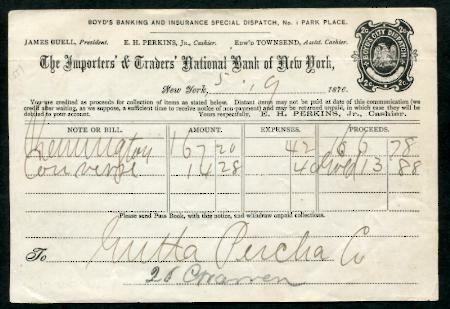 BOYD'S BANKING AND INSURANCE SPECIAL DISPATCH, No. 1 PARK PLACE.
JAMES BUELL, President. E. H. PERKINS, Jr., Cashier. Edw'd TOWNSEND, Assist. Cashier.
The Importers' & Traders' National Bank of New York,
New York, 5. 19 1876.
You are credited as proceeds for collection of items as stated below. Distant items may not be paid at date of this communication (we
credit after waiting, as we suppose, a sufficient time to receive notice of non-payment) and may be returned unpaid, in which case they will be
debited to your account. Yours respectfully, E. H. PERKINS, Jr., Cashier.
NOTE OR BILL. AMOUNT. EXPENSES. PROCEEDS.
167 20 42 166 78
Converse 14 28 40 13 88
Please send Pass Book, with this notice, and withdraw unpaid collections.
To Gutta Percha Co
26 Warren